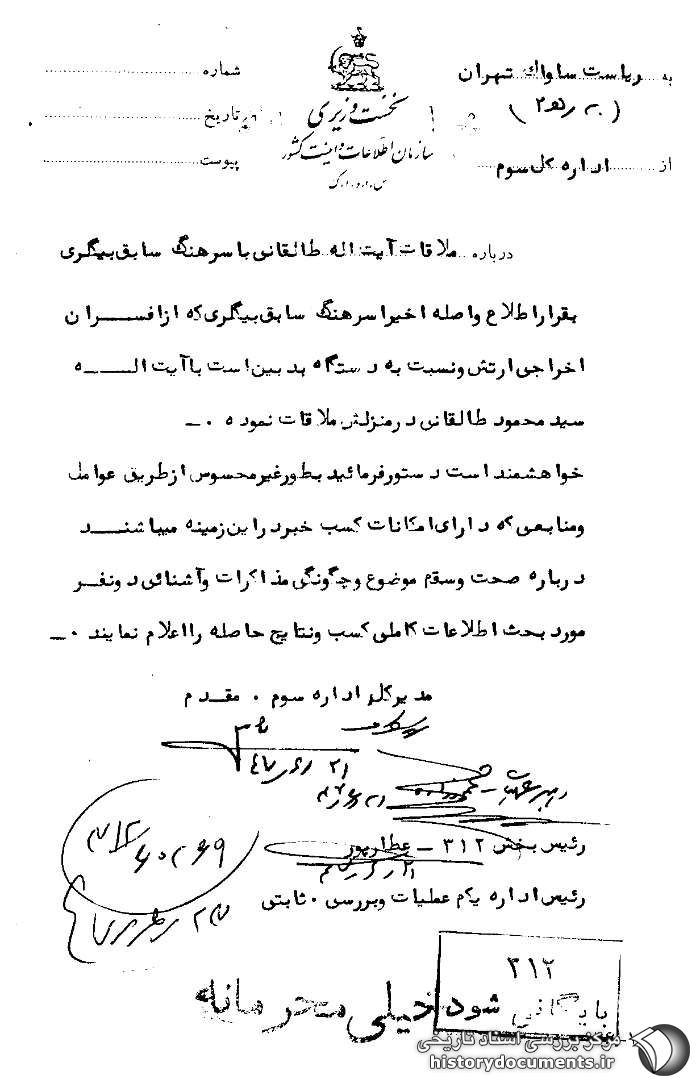 به ریاست ساواک تهران
شماره
نخست وزیری
تاریخ
سازمان اطلاعات و امنیت کشور
س.ا.و.ا.ک
از اداره کل سوم
پیوست
درباره ملاقات آیت اله طالقانی با سرهنگ سابق بیگلری
بقرار اطلاع واصله اخیرا سرهنگ سابق بیگلری که از افسران
اخراجی ارتش و نسبت به دستگاه بدبین است با آیت اله
سید محمود طالقانی در منزلش ملاقات نموده ۰ـ
خواهشمند است دستور فرمائید بطور غیرمحسوس از طریق عوامل
و منابعی که دارای امکانات کسب خبر در این زمینه میباشند
درباره صحت و سقم موضوع و چگونگی مذاکرات و آشنائی دو نفر
مورد بحث اطلاعات کاملی کسب و نتایج حاصله را اعلام نمایند ۰ـ
مدیرکل اداره سوم ۰ مقدم
رئیس بخش ۳۱۲ ـ عطارپور
رئیس اداره یکم عملیات و بررسی ۰ ثابتی
۳۱۲
بایگانی شود
خیلی محرمانه
مرکز بررسی اسناد تاریخی
historydocuments.ir